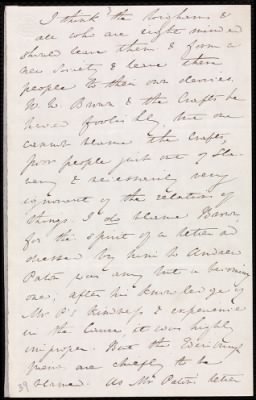 I think the Brighams &
all who are right minded
should leave them & form a
new Society & leave these
people to their own devices.
W. W. Brown & the Crafts be
haved foolishly, but one
cannot blame the Crafts,
poor people just out of Sla
very & necessarily very
ignorant of the relation of
things. I do blame Brown
for the spirit of a letter ad
dressed by him to Andrew
Paton was any but a becoming
one, after his knowledge of
Mr P's kindness & experience
in the Cause, it was highly
improper. But the
are chiefly to be
blamed. As Mr Paton's letter
39